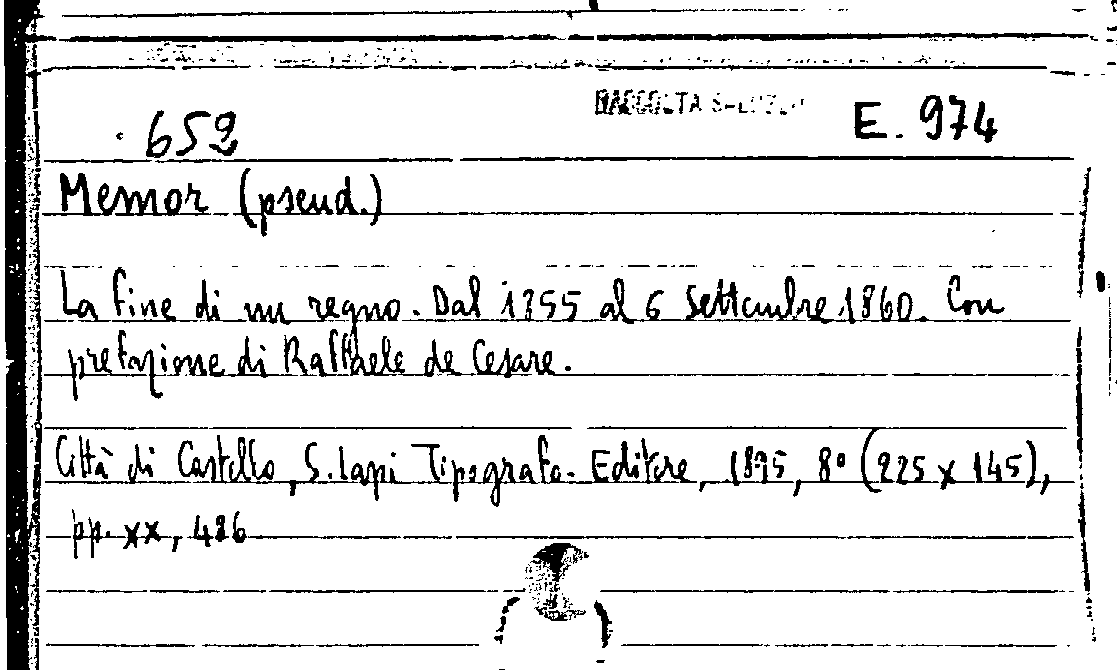 652
RACCOLTA
E. 974
Memor (pseud.)
La fine di un regno. Dal 1855 al 6 Settembre 1860. Con
prefazione di Raffaele de Cesare.
Città di Castello, S. Lapi Tipografo-Editore, 1895, 8° (225 x 145),
pp. xx, 486